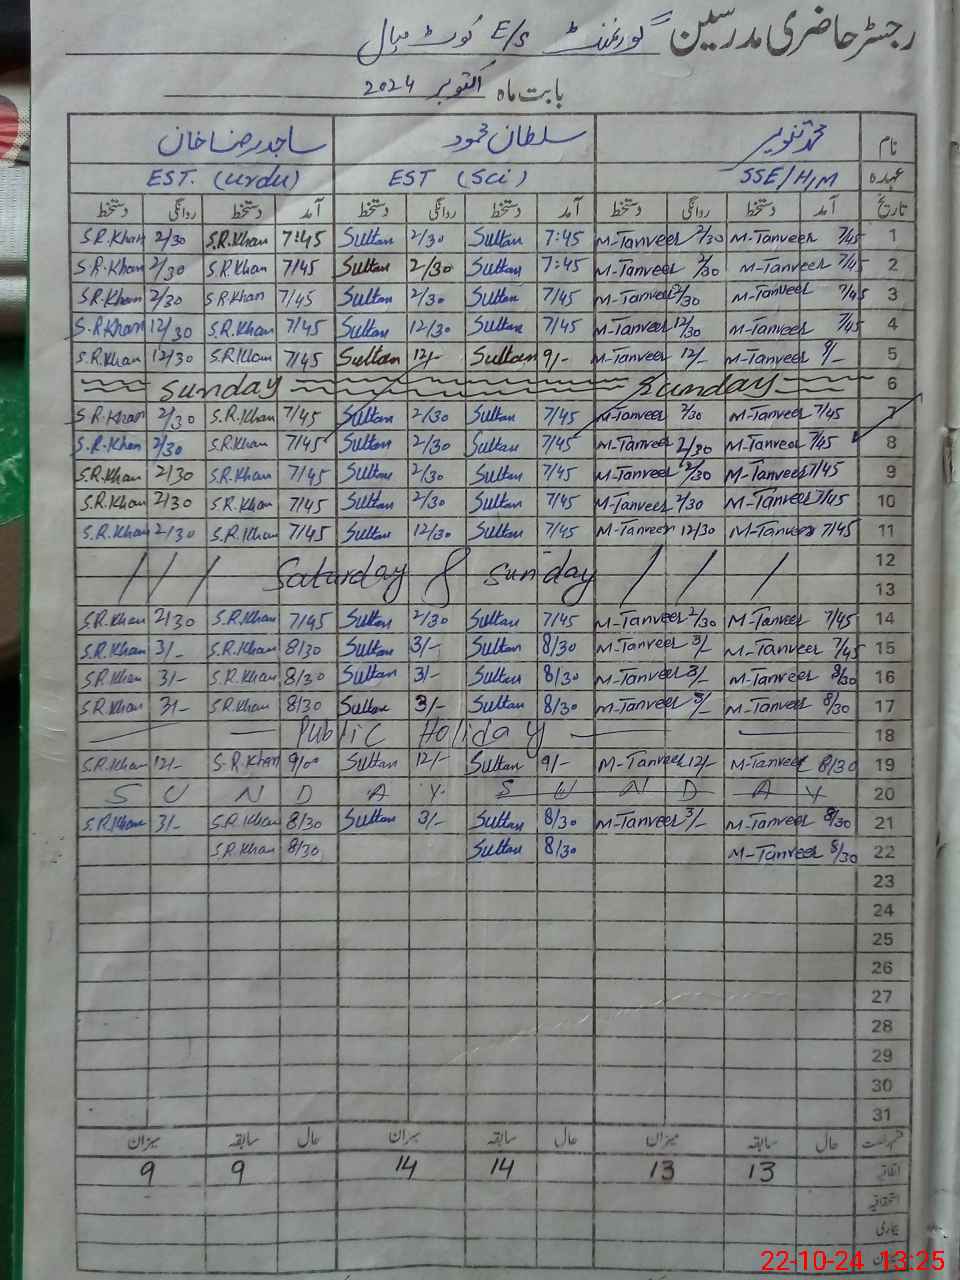 رجسٹر حاضری مدرسین گورنمنٹ E/S کوٹ میال
بابت ماہ اکتوبر 2024
نام محمد تنویر سلطان محمود ساجد رضا خان
عہدہ SSE/H/M EST (Sci) EST. (Urdu)
تاریخ آمد دستخط روانگی دستخط آمد دستخط روانگی دستخط آمد دستخط روانگی دستخط
S.R.Khan 2/30 S.R.Khan 7:45 Sultan 2/30 Sultan 7:45 M-Tanveer 2/30 M-Tanveer 7/45 1
S.R.Khan 2/30 S.R.Khan 7/45 Sultan 2/30 Sultan 7:45 M-Tanveer 2/30 M-Tanveer 7/45 2
S.R.Khan 2/30 S.R.Khan 7/45 Sultan 2/30 Sultan 7/45 M-Tanveer 2/30 M-Tanveer 7/45 3
S.R.Khan 12/30 S.R.Khan 7/45 Sultan 12/30 Sultan 7/45 M-Tanveer 12/30 M-Tanveer 7/45 4
S.R.Khan 12/30 S.R.Khan 7/45 Sultan 12/- Sultan 9/- M-Tanveer 12/- M-Tanveer 9/- 5
Sunday Sunday 6
S.R.Khan 2/30 S.R.Khan 7/45 Sultan 2/30 Sultan 7/45 M-Tanveer 2/30 M-Tanveer 7/45 7
S.R.Khan 2/30 S.R.Khan 7/45 Sultan 2/30 Sultan 7/45 M-Tanveer 2/30 M-Tanveer 7/45 8
S.R.Khan 2/30 S.R.Khan 7/45 Sultan 2/30 Sultan 7/45 M-Tanveer 2/30 M-Tanveer 7/45 9
S.R.Khan 2/30 S.R.Khan 7/45 Sultan 2/30 Sultan 7/45 M-Tanveer 2/30 M-Tanveer 7/45 10
S.R.Khan 2/30 S.R.Khan 7/45 Sultan 12/30 Sultan 7/45 M-Tanveer 12/30 M-Tanveer 7/45 11
12
Saturday & Sunday
13
S.R.Khan 2/30 S.R.Khan 7/45 Sultan 2/30 Sultan 7/45 M-Tanveer 2/30 M-Tanveer 7/45 14
S.R.Khan 3/- S.R.Khan 8/30 Sultan 3/- Sultan 8/30 M-Tanveer 3/- M-Tanveer 7/45 15
S.R.Khan 3/- S.R.Khan 8/30 Sultan 3/- Sultan 8/30 M-Tanveer 3/- M-Tanveer 8/30 16
S.R.Khan 3/- S.R.Khan 8/30 Sultan 3/- Sultan 8/30 M-Tanveer 3/- M-Tanveer 8/30 17
Public Holiday 18
S.R.Khan 12/- S.R.Khan 9/00 Sultan 12/- Sultan 9/- M-Tanveer 12/- M-Tanveer 8/30 19
S U N D A Y S U N D A Y 20
S.R.Khan 3/- S.R.Khan 8/30 Sultan 3/- Sultan 8/30 M-Tanveer 3/- M-Tanveer 8/30 21
S.R.Khan 8/30 Sultan 8/30 M-Tanveer 8/30 22
23
24
25
26
27
28
29
30
31
حال سابقہ میزان حال سابقہ میزان حال سابقہ میزان
اتفاقیہ 13 13 14 14 9 9
22-10-24 13:25